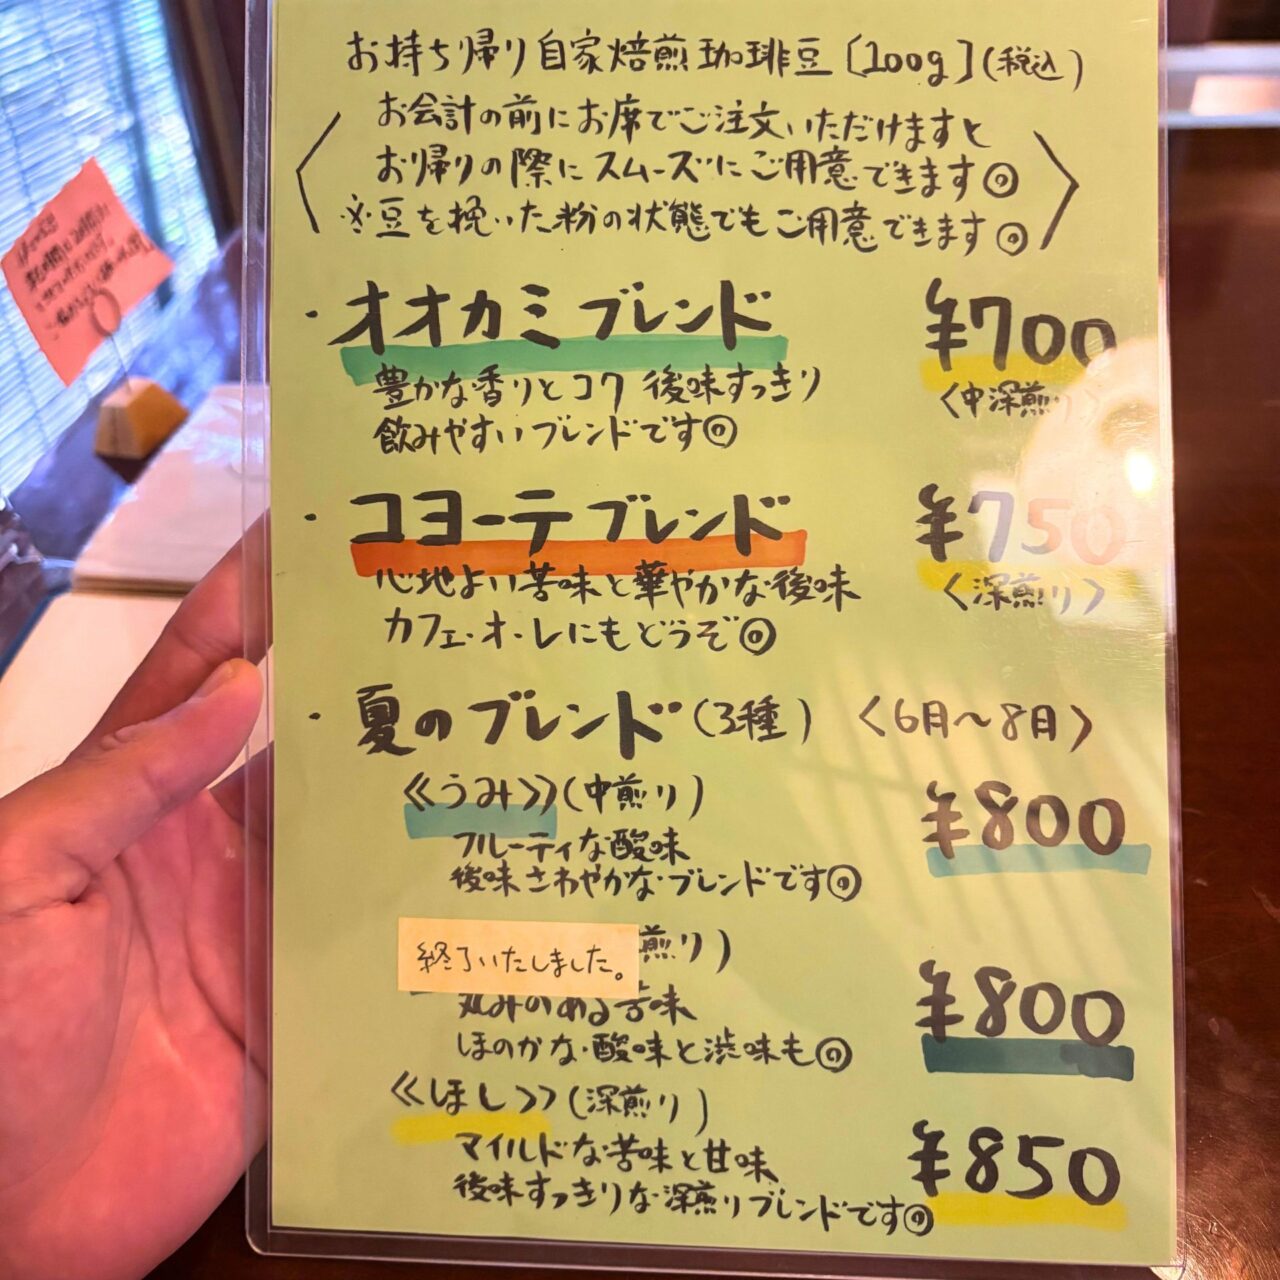 お持ち帰り自家焙煎珈琲豆〔100g〕(税込)
お会計の前にお席でご注文いただけますと
お帰りの際にスムーズにご用意できます
※豆を挽いた粉の状態でもご用意できます
・オオカミブレンド ¥700
豊かな香りとコク 後味すっきり 〈中深煎り〉
飲みやすいブレンドです
・コヨーテブレンド ¥750
心地よい苦味と華やかな後味 〈深煎り〉
カフェ・オ・レにもどうぞ
・夏のブレンド(3種) 〈6月〜8月〉
《うみ》(中煎り) ¥800
フルーティな酸味
後味さわやかなブレンドです
終了いたしました。
煎り) ¥800
丸みのある苦味
ほのかな酸味と渋味も
《ほし》(深煎り) ¥850
マイルドな苦味と甘味
後味すっきりな深煎りブレンドです